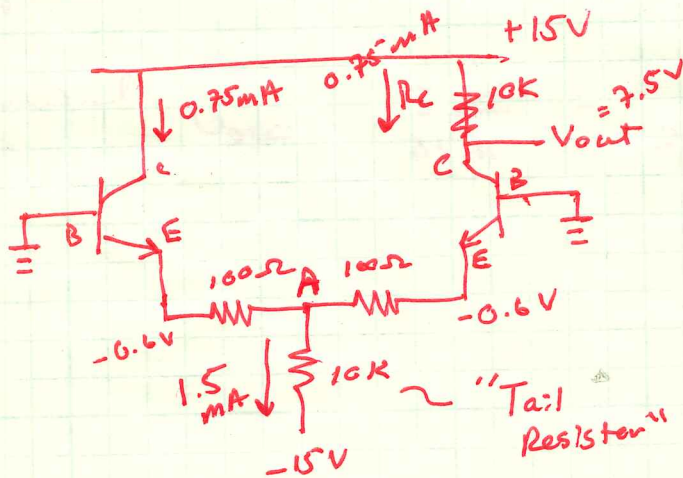 +15V
0.75mA
0.75mA
Rc
10K
Vout
=7.5V
C
C
B
B
E
E
100Ω
A
100Ω
-0.6V
-0.6V
1.5
mA
10K
"Tail
Resistor"
-15V